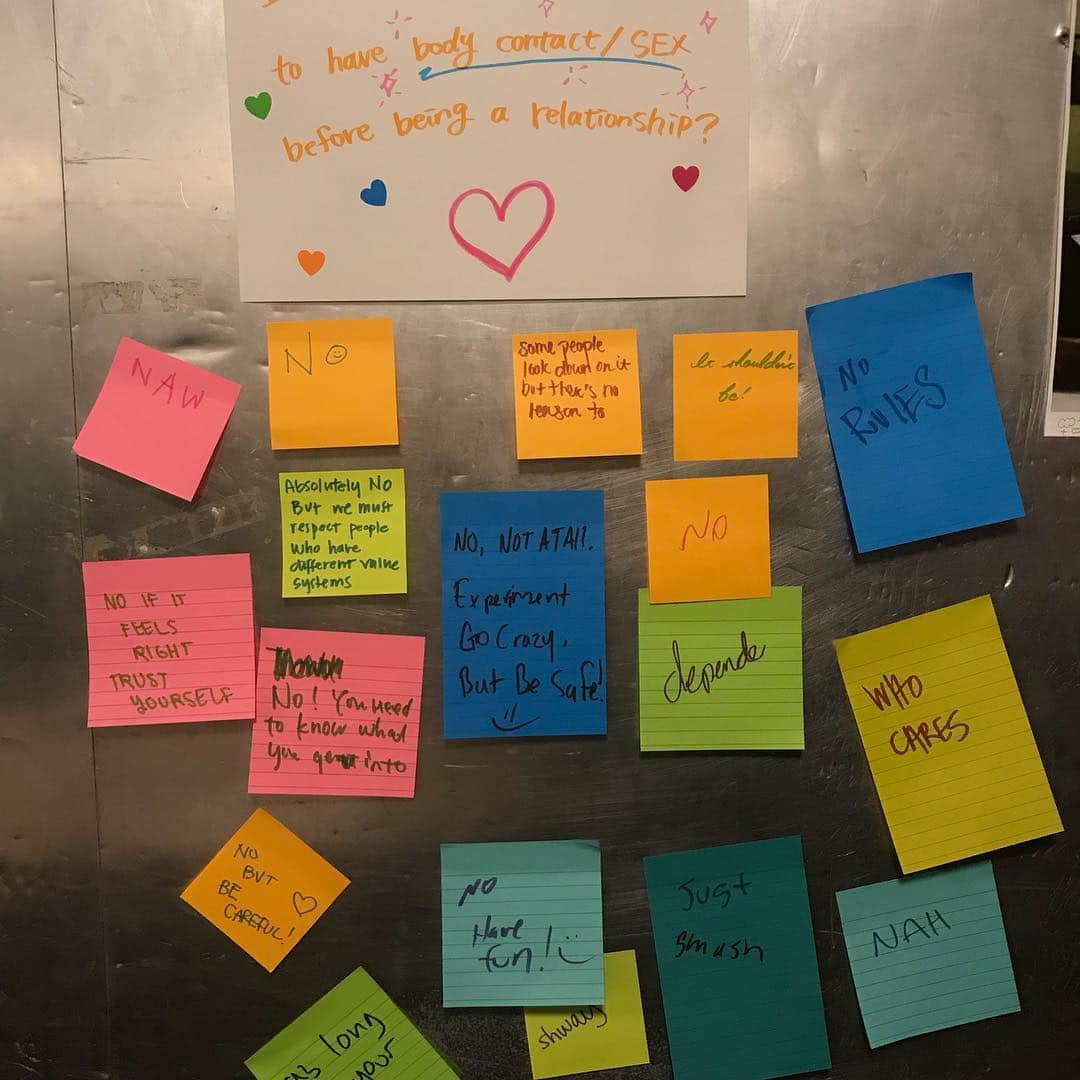 to have body contact/SEX
before being a relationship?
NAW
No
some people
look down on it
but there's no
reason to
It shouldn't
be!
NO
RULES
Absolutely NO
But we must
respect people
who have
different value
systems
NO, NOT AT All.
Experiment
Go Crazy,
But Be Safe!
NO
NO IF IT
FEELS
RIGHT
TRUST
YOURSELF
No! You need
to know what
you into
depends
WHO
CARES
NO
BUT
BE
CAREFUL!
NO
Have
fun!
Just
smash
NAH
shway
long
your